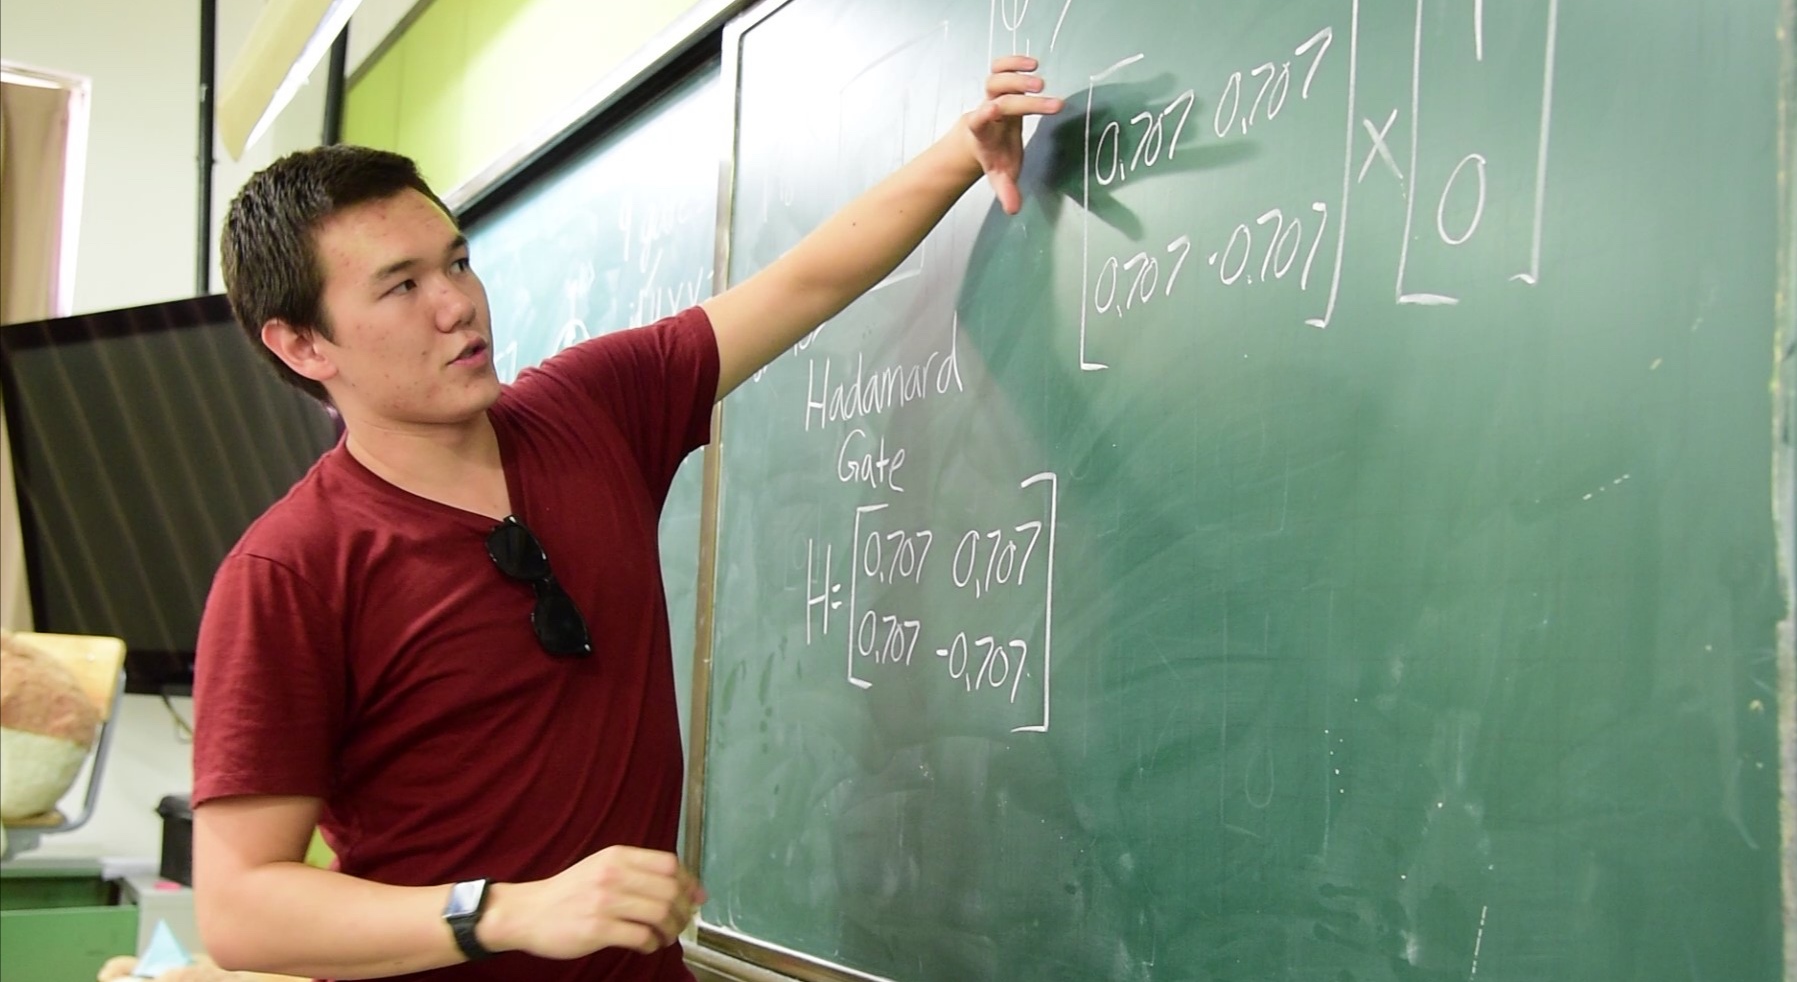 0.707 0.707 × 1
0.707 -0.707 0
Hadamard
Gate
H= 0.707 0.707
0.707 -0.707